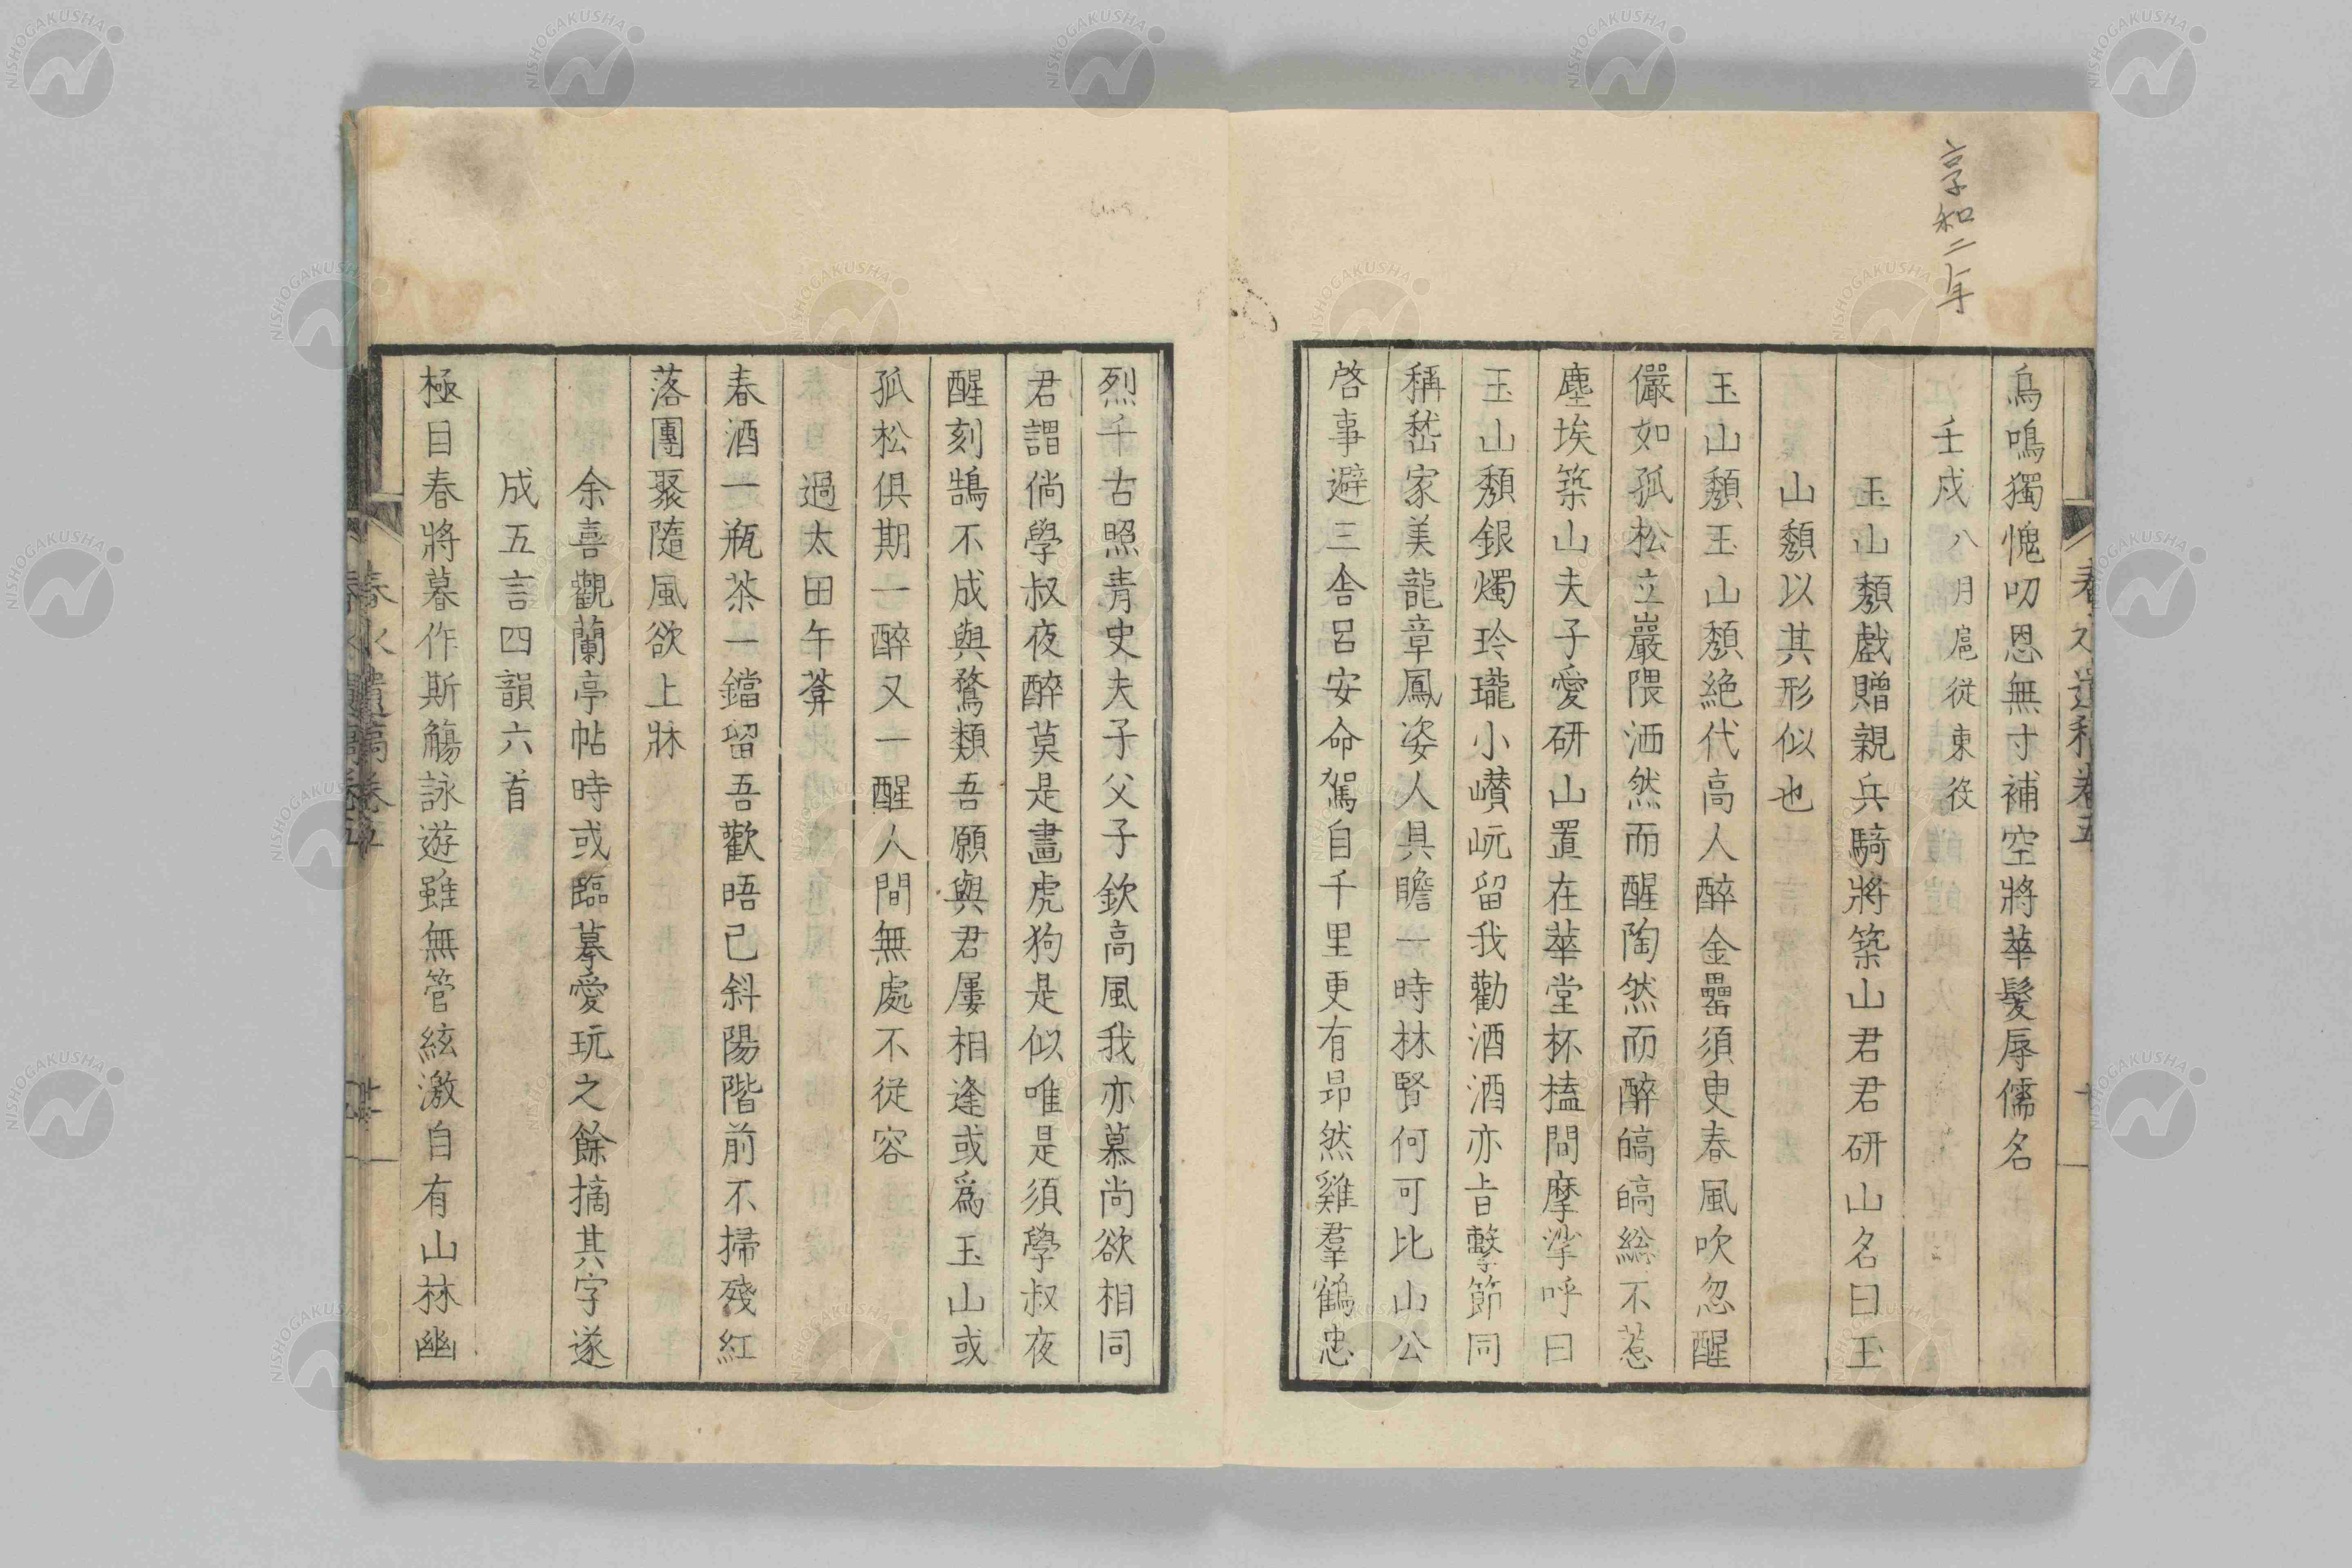 享和二年
烏鳴獨愧叨恩無寸補空將華髮辱儒名
壬戍八月扈從東役
玉山頽戲贈親兵騎將築山君君研山名曰玉
山頽以其形似也
玉山頽玉山頽絶代高人醉金罍須臾春風吹忽醒
儼如孤松立巖隈洒然而醒陶然而醉皜皜緫不惹
塵埃築山夫子愛研山置在華堂杯榼間摩挲呼曰
玉山頽銀燭玲瓏小巑岏留我勸酒酒亦旨擊節同
稱嵇家美龍章鳳姿人具瞻一時林賢何可比山公
啓事避三舍呂安命駕自千里更有昂然雞羣鶴忠
烈千古照青史夫子父子欽高風我亦慕尚欲相同
君謂倘學叔夜醉莫是畫虎狗是似唯是須學叔夜
醒刻鵠不成與鶩類吾願與君屢相逢或爲玉山或
孤松俱期一醉又一醒人間無處不從容
過太田午莾
春酒一瓶茶一鐺留吾歡晤已斜陽階前不掃殘紅
落團聚隨風欲上牀
余喜觀蘭亭帖時或臨摹愛玩之餘摘其字遂
成五言四韻六首
極目春將暮作斯觴詠遊雖無管絃激自有山林幽
春水遺稿卷五
NISHOGAKUSHA